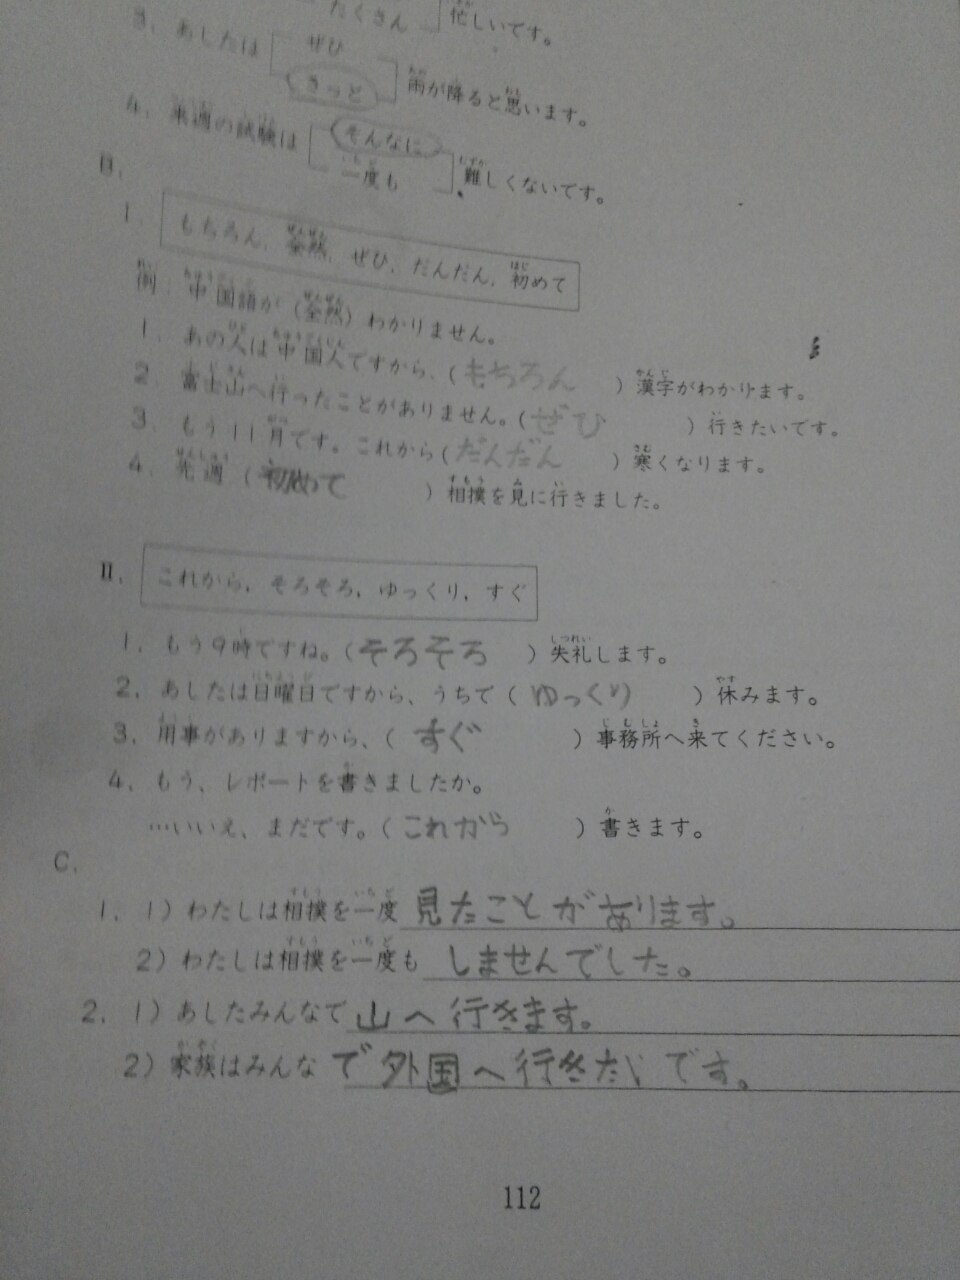 たくさん 忙しいです。
3. あしたは ぜひ きっと 雨が降ると思います。
4. 来週の試験は そんなに 一度も 難しくないです。
B.
I. もちろん, 全然, ぜひ, だんだん, 初めて
例: 中国語が (全然) わかりません。
1. あの人は中国人ですから、(もちろん) 漢字がわかります。
2. 富士山へ行ったことがありません。(ぜひ) 行きたいです。
3. もう11月です。これから (だんだん) 寒くなります。
4. 先週 (初めて) 相撲を見に行きました。
II. これから, そろそろ, ゆっくり, すぐ
1. もう9時ですね。(そろそろ) 失礼します。
2. あしたは日曜日ですから、うちで (ゆっくり) 休みます。
3. 用事がありますから、(すぐ) 事務所へ来てください。
4. もう、レポートを書きましたか。
…いいえ、まだです。(これから) 書きます。
C.
1. 1) わたしは相撲を一度 見たことがあります。
2) わたしは相撲を一度も しませんでした。
2. 1) あしたみんなで 山へ行きます。
2) 家族はみんな で外国へ行きたいです。
112